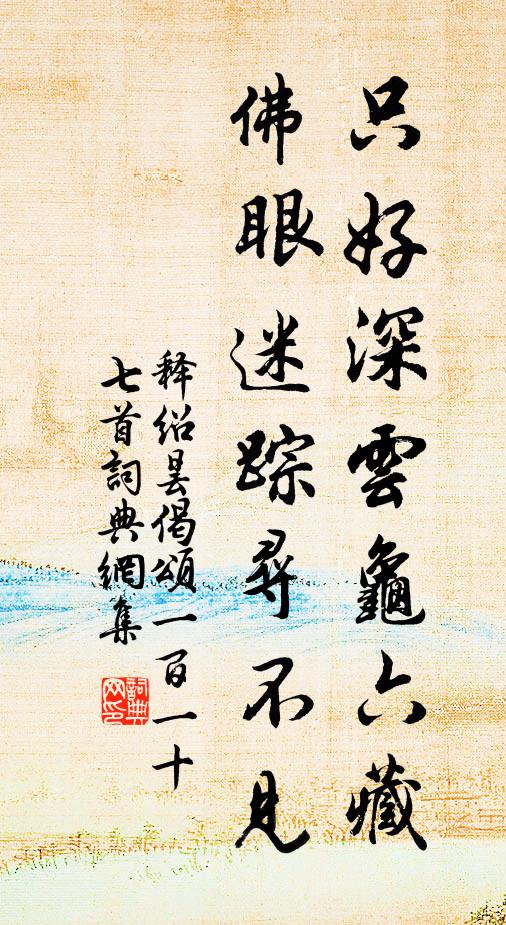 只好深雲龜六藏
佛眼迷踪尋不見
释绍昙偈頌一百一十
七首詞典網集
詞典
网印